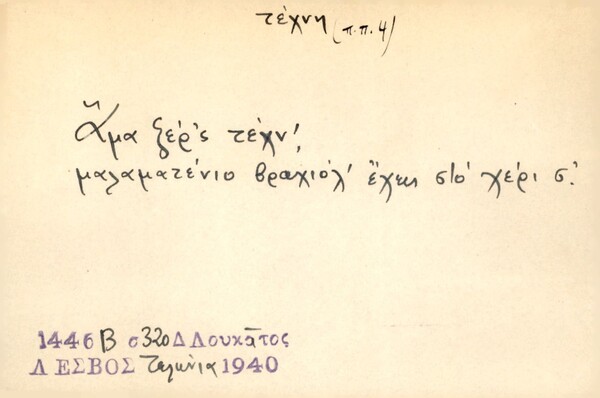 τέχνη (π.π. 4)
Ἅμα ξέρ'ς τέχν',
μαλαματένιο βραχιόλ' ἔχεις στὸ χέρι σ'.
1446 Β σ 320 Δ Λουκᾶτος
ΛΕΣΒΟΣ Τελώνια 1940